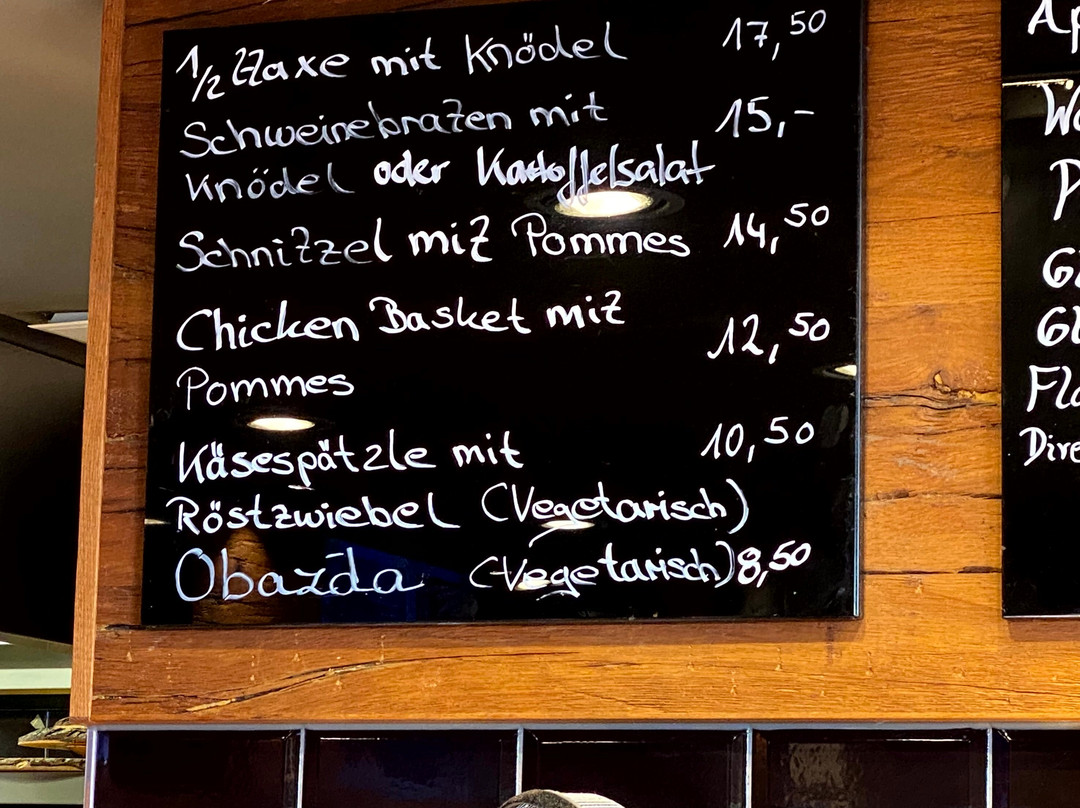 1/2 Haxe mit Knödel 17,50
Schweinebraten mit 15,-
Knödel oder Kartoffelsalat
Schnitzel mit Pommes 14,50
Chicken Basket mit 12,50
Pommes
Käsespätzle mit 10,50
Röstzwiebel (Vegetarisch)
Obazda (Vegetarisch) 8,50